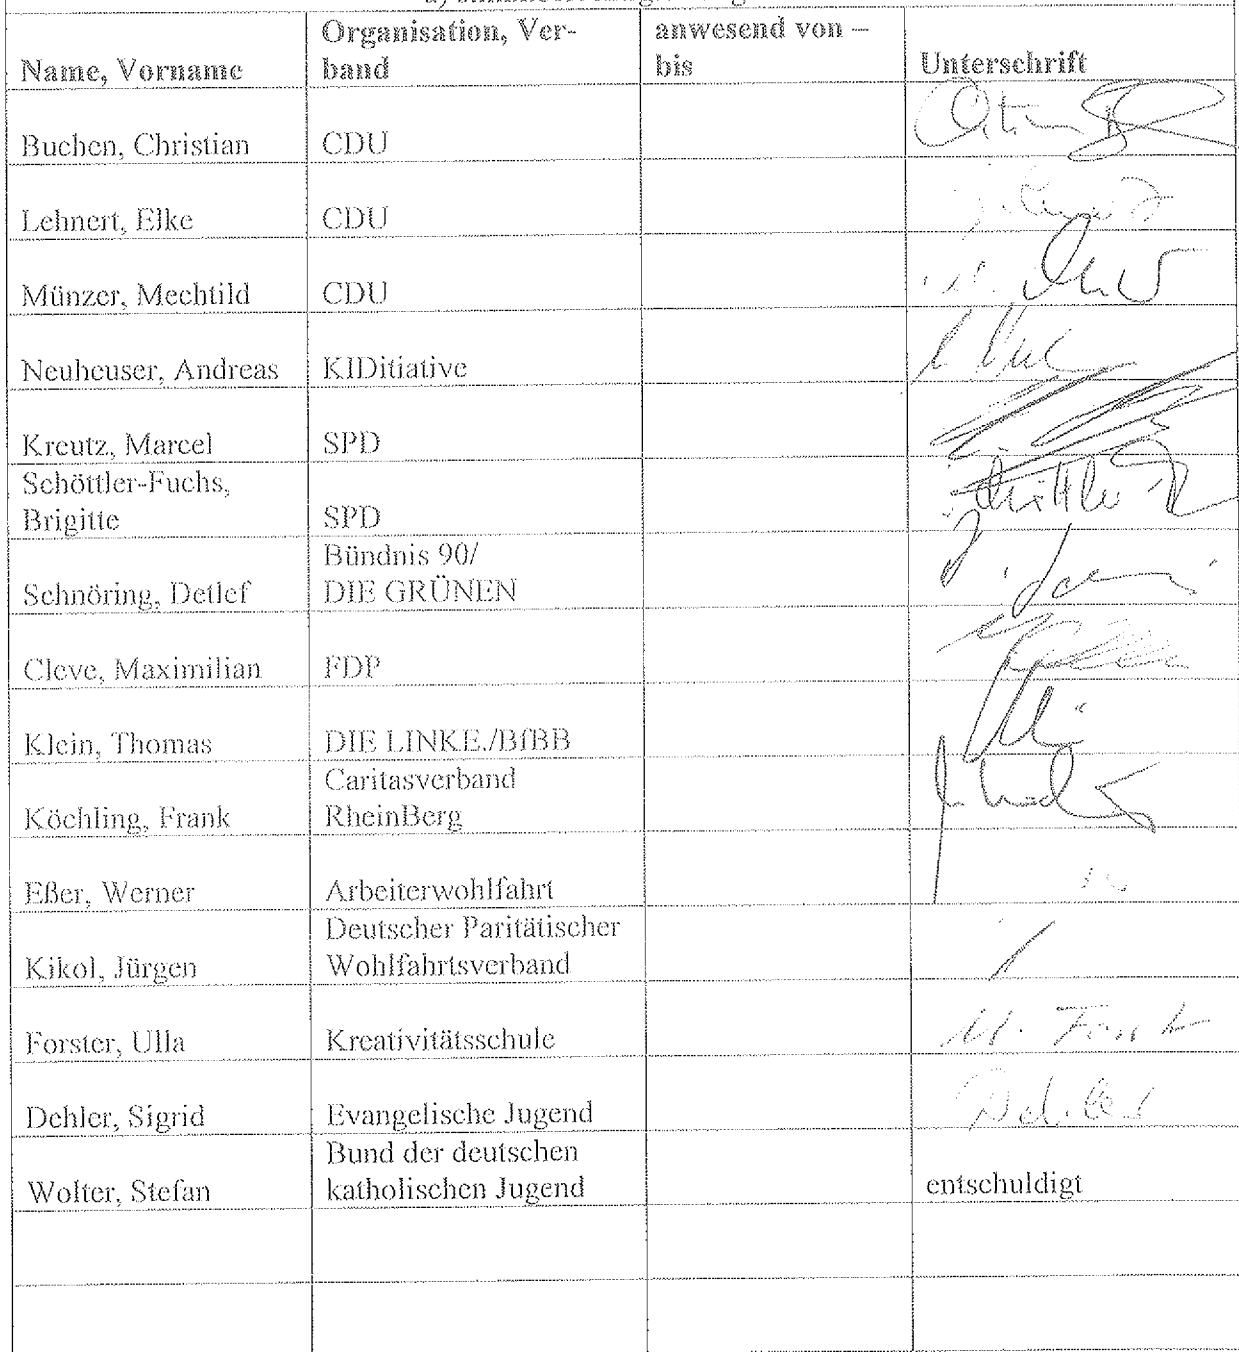 Name, Vorname
Organisation, Ver-
band
anwesend von –
bis
Unterschrift
Buchen, Christian
CDU
Lehnert, Elke
CDU
Münzer, Mechtild
CDU
Neuheuser, Andreas
KIDitiative
Kreutz, Marcel
SPD
Schöttler-Fuchs,
Brigitte
SPD
Schnöring, Detlef
Bündnis 90/
DIE GRÜNEN
Cleve, Maximilian
FDP
Klein, Thomas
DIE LINKE./BfBB
Köchling, Frank
Caritasverband
RheinBerg
Eßer, Werner
Arbeiterwohlfahrt
Kikol, Jürgen
Deutscher Paritätischer
Wohlfahrtsverband
Forster, Ulla
Kreativitätsschule
Dehler, Sigrid
Evangelische Jugend
Wolter, Stefan
Bund der deutschen
katholischen Jugend
entschuldigt